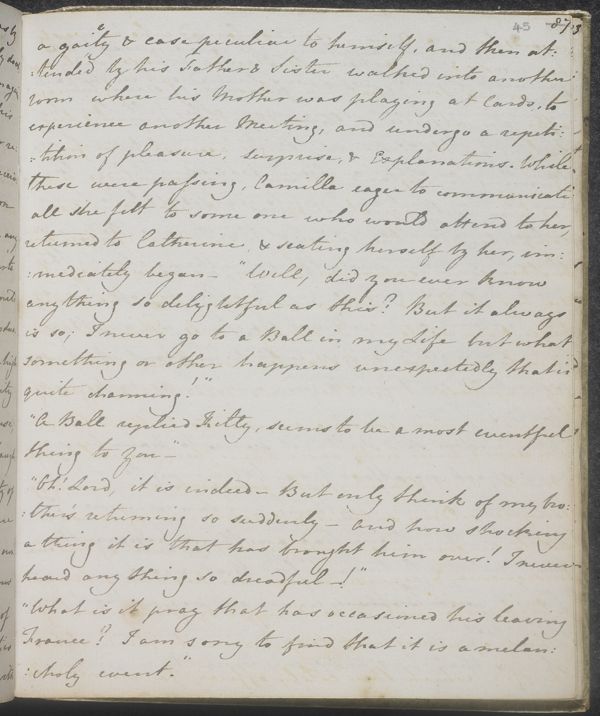 45 87
a gaiety & ease peculiar to himself, and then at:
:tended by his father & Sister walked into another
room where his Mother was playing at Cards, to
experience another Meeting, and undergo a repeti:
:tition of pleasure, surprise, & Explanations. While
these were passing, Camilla eager to communicate
all she felt to some one who would attend to her,
returned to Catherine, & seating herself by her, im:
:mediately began - "Well, did you ever know
anything so delightful as this? But it always
is so; I never go to a Ball in my Life but what
something or other happens unexpectedly that is
quite charming!"
"A Ball replied Kitty, seems to be a most eventful
thing to you -"
"Oh! Lord, it is indeed - But only think of my bro:
:ther's returning so suddenly - and how shocking
a thing it is that has brought him over! I never
heard any thing so dreadful -!"
"What is it pray that has occasioned his leaving
France? I am sorry to find that it is a melan:
:choly event."